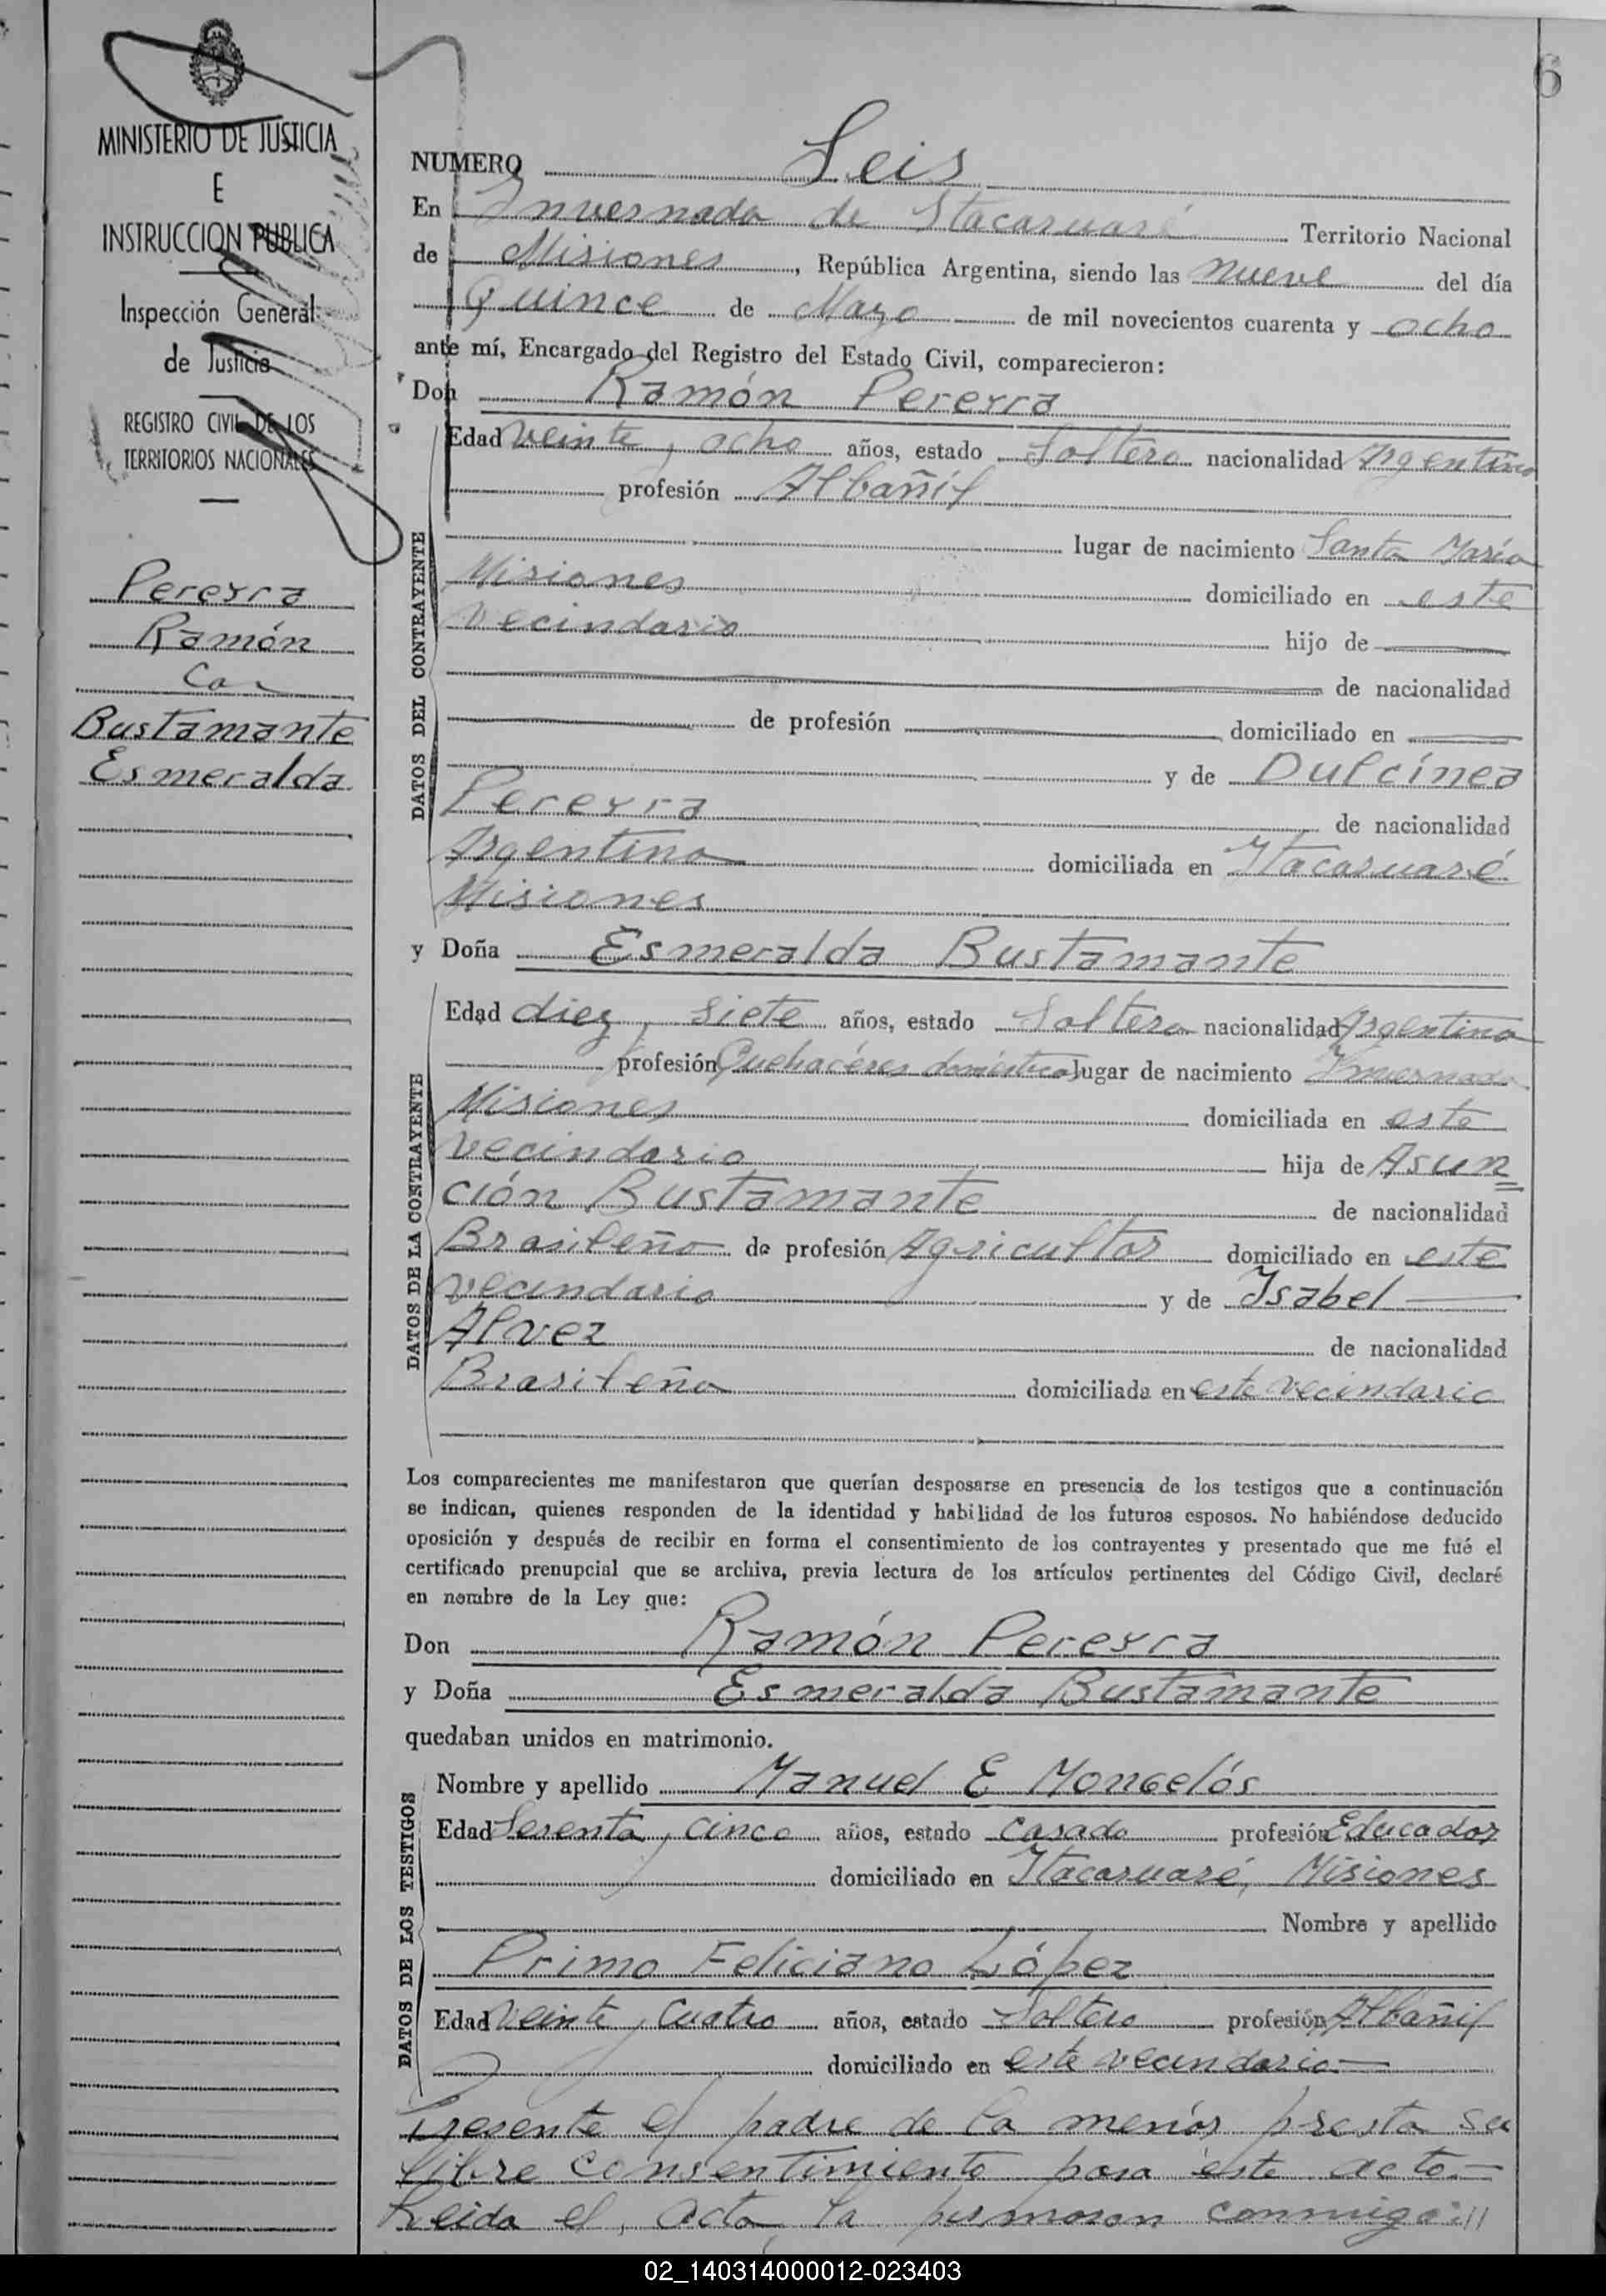 6
MINISTERIO DE JUSTICIA
E
INSTRUCCION PUBLICA
Inspección General
de Justicia
REGISTRO CIVIL DE LOS
TERRITORIOS NACIONALES
Pereyra
Ramón
Con
Bustamante
Esmeralda
NUMERO Seis
En Invernada de Itacaruaré Territorio Nacional
de Misiones, República Argentina, siendo las nueve del día
Quince de Mayo de mil novecientos cuarenta y ocho
ante mí, Encargado del Registro del Estado Civil, comparecieron:
Don Ramón Pereyra
DATOS DEL CONTRAYENTE
Edad veinte y ocho años, estado Soltero nacionalidad Argentino
profesión Albañil
lugar de nacimiento Santa María
Misiones domiciliado en este
vecindario hijo de
de nacionalidad
de profesión domiciliado en
y de Dulcínea
Pereyra de nacionalidad
Argentina domiciliada en Itacaruaré
Misiones
y Doña Esmeralda Bustamante
DATOS DE LA CONTRAYENTE
Edad diez y siete años, estado Soltera nacionalidad Argentina
profesión Quehacéres domésticos lugar de nacimiento Invernada
Misiones domiciliada en este
vecindario hija de Asun
ción Bustamante de nacionalidad
Brasileño de profesión Agricultor domiciliado en este
vecindario y de Isabel
Alvez de nacionalidad
Brasileña domiciliada en este vecindario
Los comparecientes me manifestaron que querían desposarse en presencia de los testigos que a continuación
se indican, quienes responden de la identidad y habilidad de los futuros esposos. No habiéndose deducido
oposición y después de recibir en forma el consentimiento de los contrayentes y presentado que me fué el
certificado prenupcial que se archiva, previa lectura de los artículos pertinentes del Código Civil, declaré
en nombre de la Ley que:
Don Ramón Pereyra
y Doña Esmeralda Bustamante
quedaban unidos en matrimonio.
DATOS DE LOS TESTIGOS
Nombre y apellido Manuel E Mongelós
Edad Sesenta y cinco años, estado casado profesión Educador
domiciliado en Itacaruaré, Misiones
Nombre y apellido
Primo Feliciano López
Edad veinte y cuatro años, estado Soltero profesión Albañil
domiciliado en este vecindario
Presente el padre de la menór presta su
libre consentimiento para éste acto.—
Leida el acta la firmaron conmigo:
02_140314000012-023403